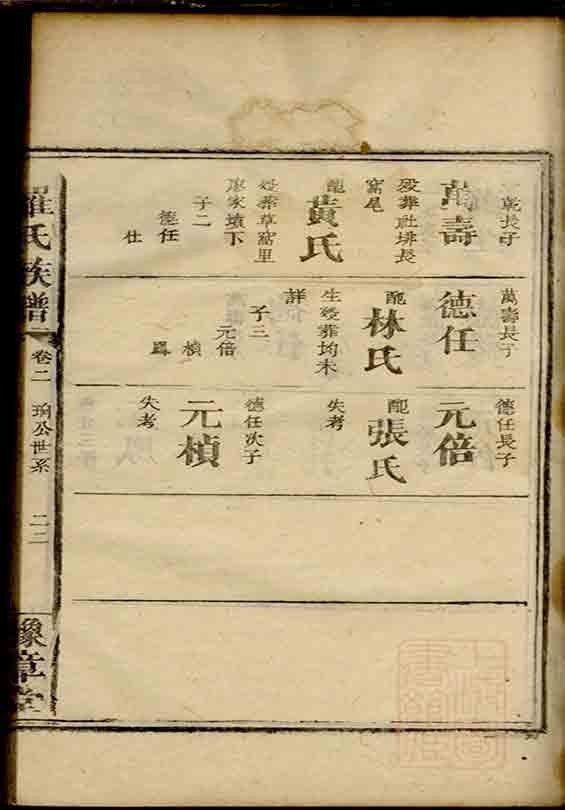 乾長子
萬壽
歿葬社埤長
窩尾
配
黃氏
歿葬草窩里
廖家墳下
子二
德任
仕
萬壽長子
德任
配
林氏
生歿葬均未
詳
子三
元倍
楨
德任長子
元倍
配
張氏
失考
德任次子
元楨
失考
羅氏族譜
卷二
珣公世系
二三
豫章堂